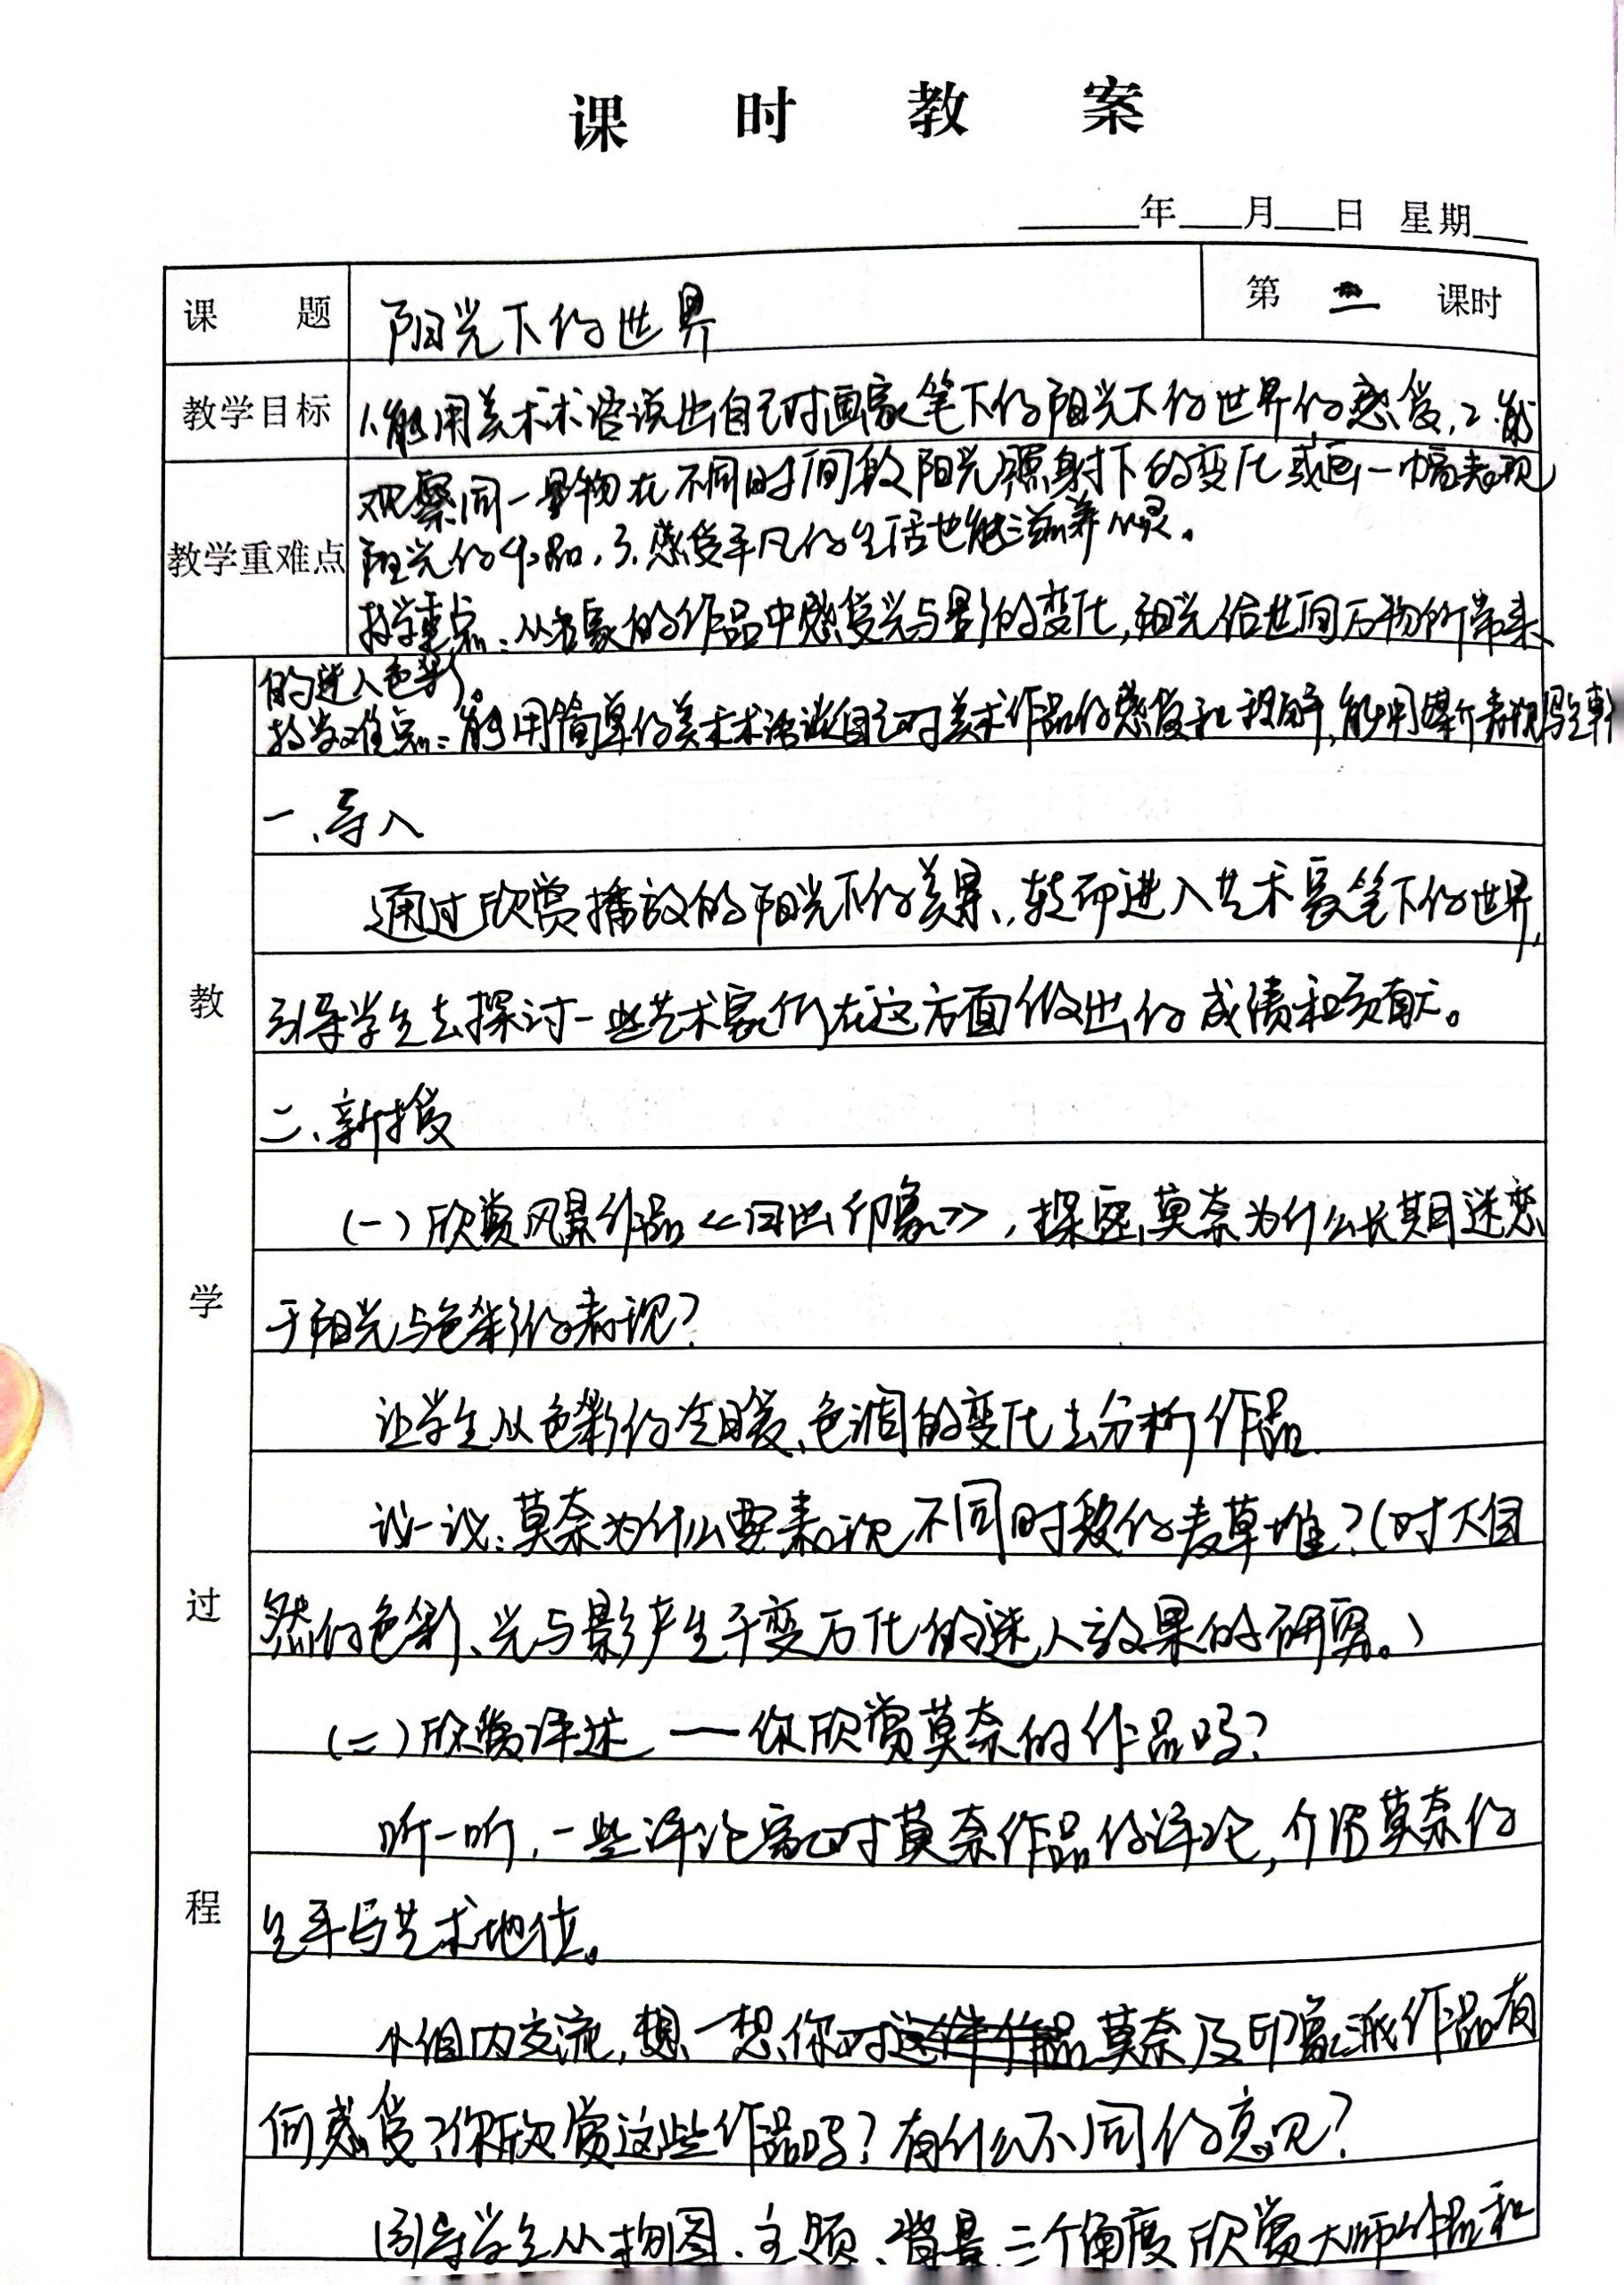 课 时 教 案
年 月 日 星期
课 题 阳光下的世界 第 二 课时
教学目标 1.能用美术术语说出自己对画家笔下的阳光下的世界的感受,2.能
观察同一景物在不同时间段阳光照射下的变化或画一幅表现
教学重难点 阳光的作品,3.感受平凡的生活也能滋养心灵。
教学重点:从名家的作品中感受光与影的变化,阳光给世间万物所带来
的迷人色彩。
教学难点:能用简单的美术术语谈自己对美术作品的感受和理解,能用
一、导入
通过欣赏播放的阳光下的美景,转而进入艺术家笔下的世界,
引导学生去探讨一些艺术家们在这方面做出的成绩和贡献。
二、新授
(一)欣赏风景作品《日出印象》,探究莫奈为什么长期迷恋
于阳光与色彩的表现?
让学生从色彩的冷暖、色调的变化去分析作品
议一议:莫奈为什么要表现不同时段的麦草堆?(对大自
然的色彩、光与影产生千变万化的迷人效果的研究。)
(二)欣赏评述 — 你欣赏莫奈的作品吗?
听一听,一些评论家对莫奈作品的评论,介绍莫奈的
生平与艺术地位。
小组内交流,想一想,你对这件作品莫奈及印象派作品有
何感受?你欣赏这些作品吗?有什么不同的意见?
引导学生从构图、主题、背景三个角度欣赏大师作品和
教
学
过
程